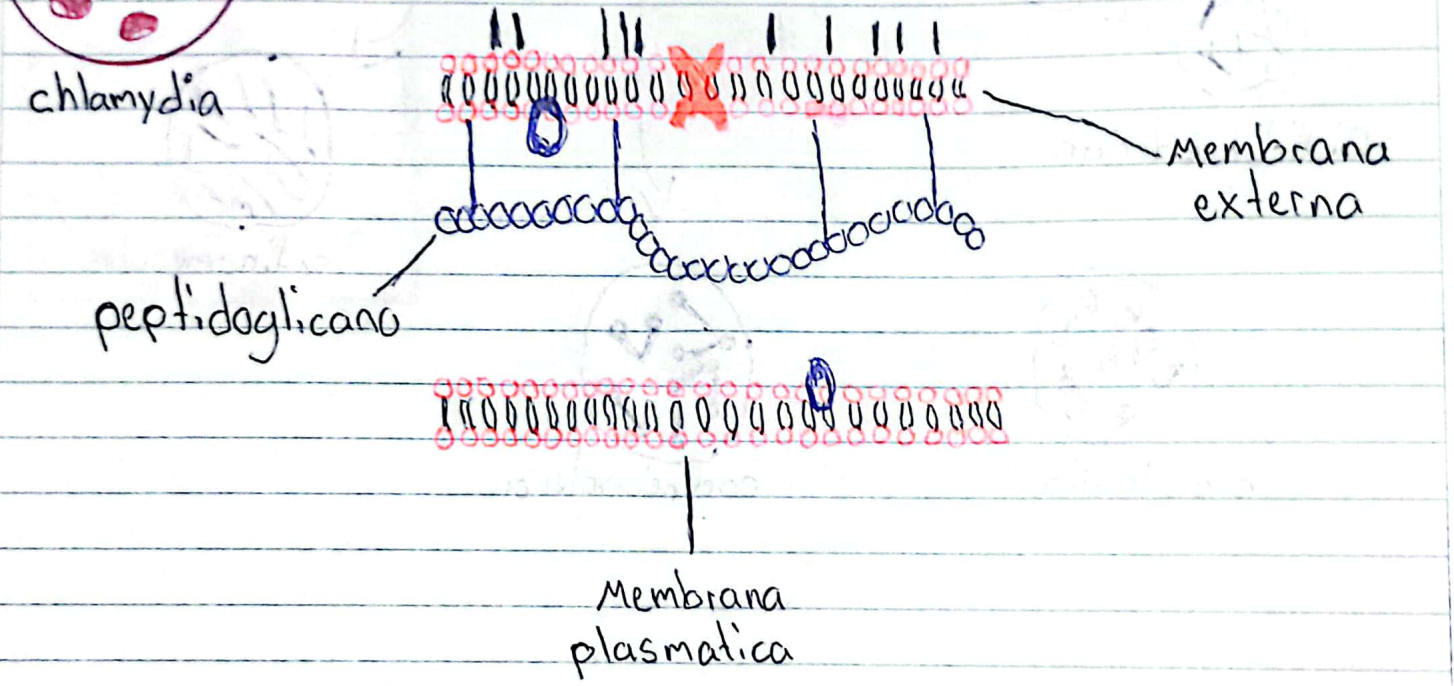 chlamydia
Membrana
externa
peptidoglicano
Membrana
plasmatica